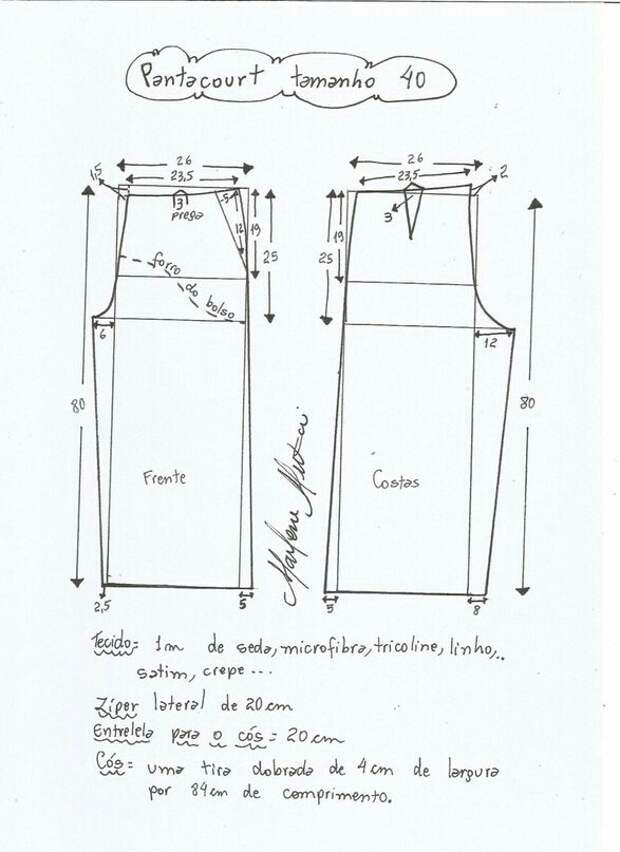 Pantacourt tamanho 40
26
23,5
1,5
3
prega
5
12
19
25
forro
do
bolso
6
80
Frente
2,5
5
26
23,5
2
3
19
25
12
80
Costas
5
8
Marlene Mukai
Tecido= 1m de seda, microfibra, tricoline, linho,..
satim, crepe...
Zíper lateral de 20cm
Entrelela para o cós= 20cm
Cós= uma tira dobrada de 4cm de largura
por 84cm de comprimento.